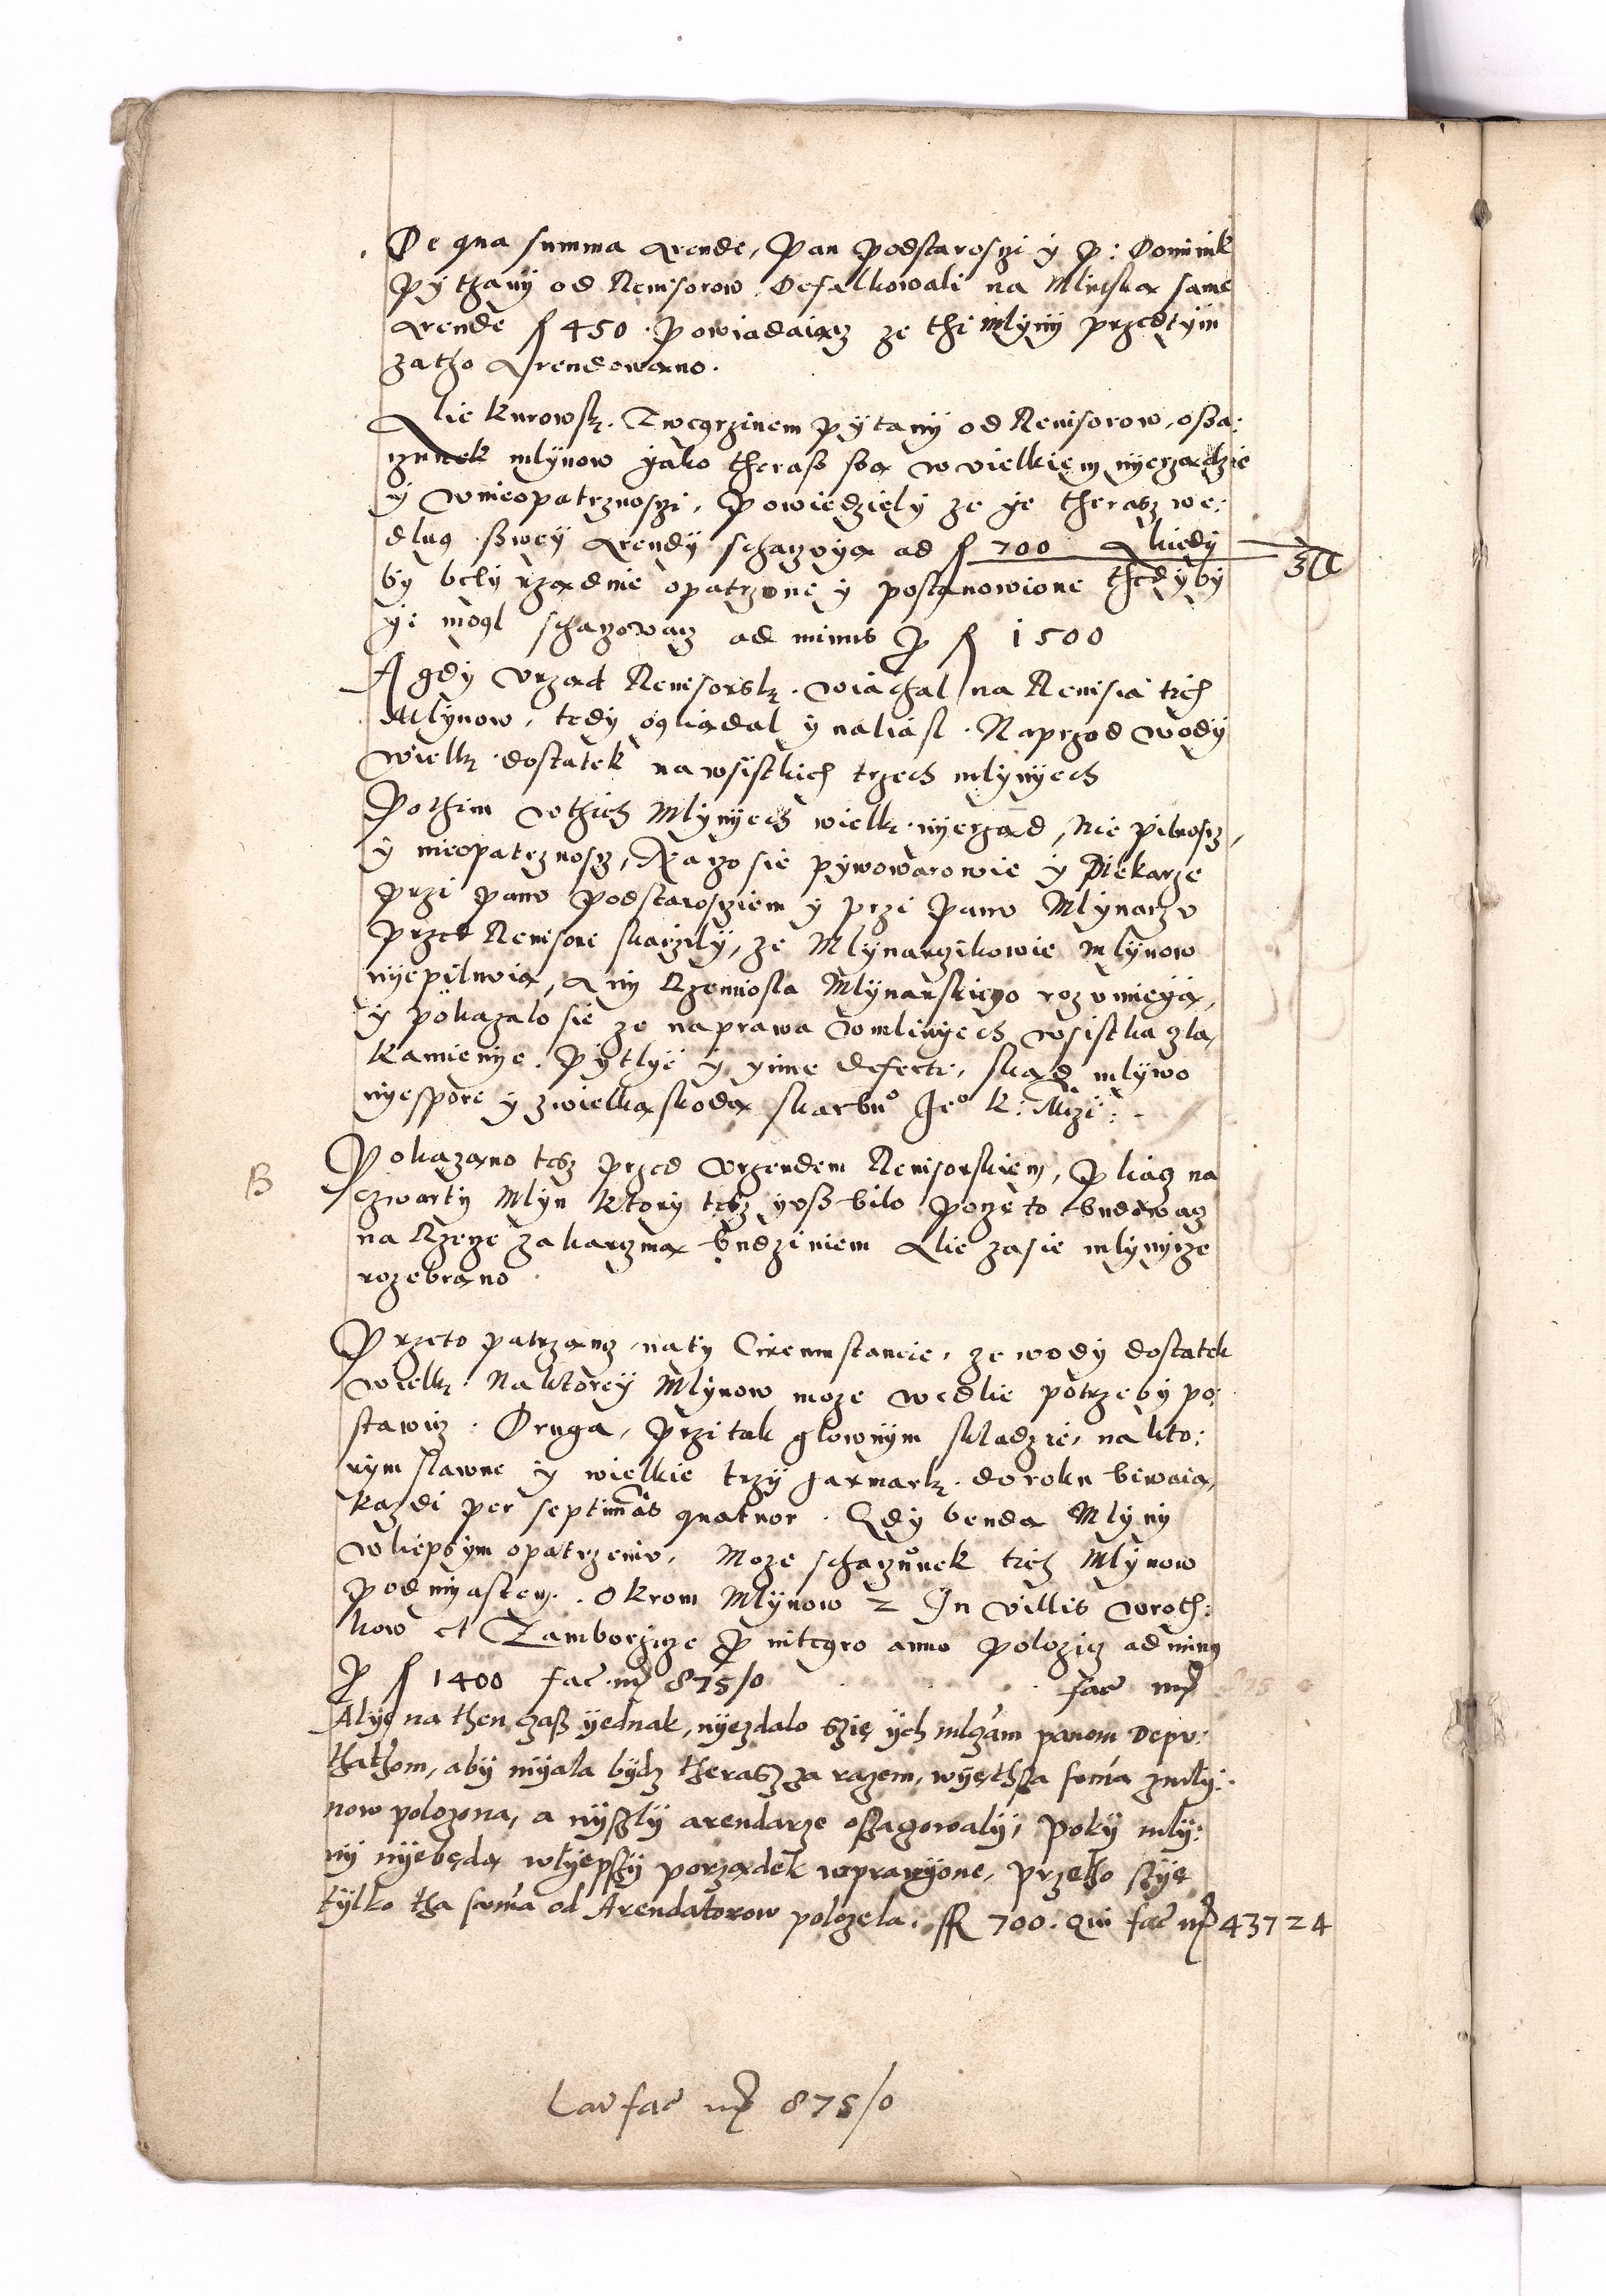 De qua summa Arende, Pan Podstarosczi y P: Dominik
Pythany od Revisorow Defalkowali na Mlinska same
Arende f 450. Powiadaiacz ze thi mlyny przedtym
zatho Arendowano.
Alie Kurowsk. Zwegrzinem Pytany od Revisorow, osza:
czunek mlynow jako therasz sza w vielkiem nyerzadzie
y w nieopatrznosczi, Powiedziely ze ye therasz we:
dlug szwey Arendy schaczvya ad f 700 A kiedy
by bely rzadnie opatrzone y postanowione thedy by
ÿ: mogl schaczowacz ad minus P f 1500
A gdy Vrzad Revisorsk. wiachal na Revisia tich
Mlynow, tedy ogliadal y naliasl. Naprzod wody
wielk. dostatek na wsistkich trzech mlynyech
Pothim w thich Mlynyech wielk. nyerzad, Nie pilnoscz,
y nieopatrznoscz, Naczo sie pywowarowie y Piekarze
przi panv Podstarosciem y przi panv Mlynarzv
przed Revisori skarzily, ze Mlynarzikowie mlynow
nyepilnvia, Any Rzemiosla Mlynarskiego rozvmieya,
y pokazalo sie ze naprawa w mlinyech wsistka zla,
Kamienye. Pytlye y ynne defecti, skad mlywo
nyespore y zwielka skoda skarbuo Jeo K: Mczi: -
B
Pokazano tesz przed Vrzendem Revisorskiem, Pliacz na
czwarty Mlyn Ktory tesz yvsz bilo poczeto budowacz
na Rzecze za karczma budziniem Alie zasie mlynicze
rozebrano
Przeto patrzancz na ty Circumstancie, ze wody dostatek
wielk. Na ktorey Mlynow moze wedlie potrzeby po:
stawicz. Druga, przi tak glownym skladzie, na kto:
rym slawne y wielkie trzy jarmark. do roku biwaia,
kazdi per septimas quatuor. Gdy benda Mlyny
w liepszym opatrzeniv, Moze schaczunek tich Mlynow
pod myastem. okrom Mlynow 2 In villis Wroth:
kow et Zamborzicze P integro anno polozicz ad minus
P f 1400 fac mr 875/0 fac mr
Alye na then czasz yednak, nyezdalo szie ych mlczam panom Depv:
thathom, aby myala bydz therasz za razem, wyethsza soma z mly:
now polozona, a nyszly arendarze oszaczowaly, Poky mly:
ny nyebeda w lyepszy porzadek wprawyone, przetho szye
tylko tha soma od Arendatorow polozela. ff 700. Qui fac mr 437 24
fac mr 875/0